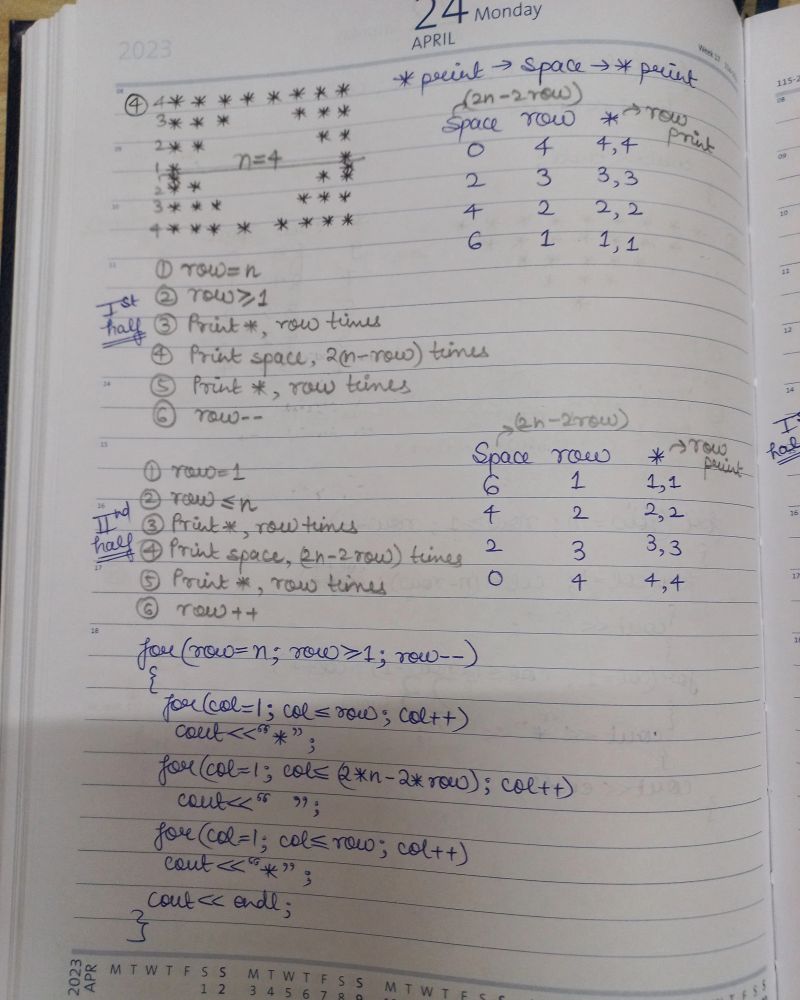 24 Monday
APRIL
2023
* print → Space → * print
④ 4 * * * * * * * *
3 * * * * * *
2 * * * *
1 * n=4 *
1 * *
2 * * * *
3 * * * * * *
4 * * * * * * * *
(2n-2row)
Space row * → row print
0 4 4,4
2 3 3,3
4 2 2,2
6 1 1,1
Ist half
① row=n
② row≥1
③ Print *, row times
④ Print space, 2(n-row) times
⑤ Print *, row times
⑥ row--
(2n-2row)
Space row * → row print
6 1 1,1
4 2 2,2
2 3 3,3
0 4 4,4
IInd half
① row=1
② row≤n
③ Print *, row times
④ Print space, (2n-2row) times
⑤ Print *, row times
⑥ row++
for(row=n; row≥1; row--)
{
for(col=1; col≤row; col++)
cout<<"*";
for(col=1; col≤(2*n-2*row); col++)
cout<<" ";
for(col=1; col≤row; col++)
cout<<"*";
cout<< endl;
}
2023
APR
M T W T F S S M T W T F S S M T W T F S S
1 2 3 4 5 6 7 8 9